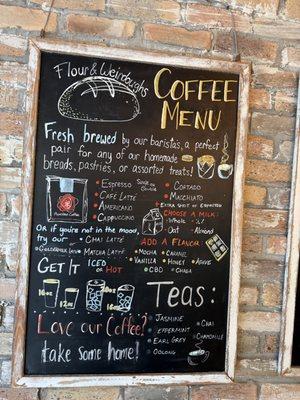 Flour & Weirdoughs
COFFEE
MENU
Fresh brewed by our barista's, a perfect
pair for any of our homemade
breads, pastries, or assorted treats!
• Espresso
• Caffè Latte
• Americano
• Cappuccino
• Cortado
• Macchiato
• Extra Shot of Espresso
CHOOSE A MILK:
• Whole • 2%
• Oat • Almond
Or if you're not in the mood,
try our • Chai Latte
• Matcha Latte
ADD A FLAVOR:
• Mocha • Caramel
• Vanilla • Honey • Agave
• CBD • Chaga
GET IT ICED OR HOT
16oz 12oz
TEAS:
• Jasmine
• Peppermint
• Earl Grey
• Oolong
• Chai
• Chamomile
Love our Coffee?
take some home!